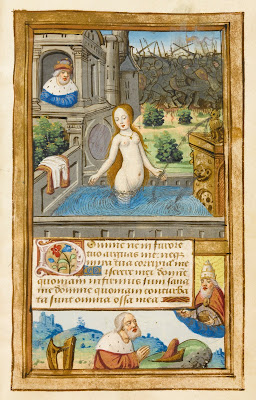 Domine ne in furore
tuo arguas me: neq3
in ira tua corripias me
Miserere mei domine
quoniam infirmus sum sana
me domine quoniam conturba
ta sunt omnia ossa mea